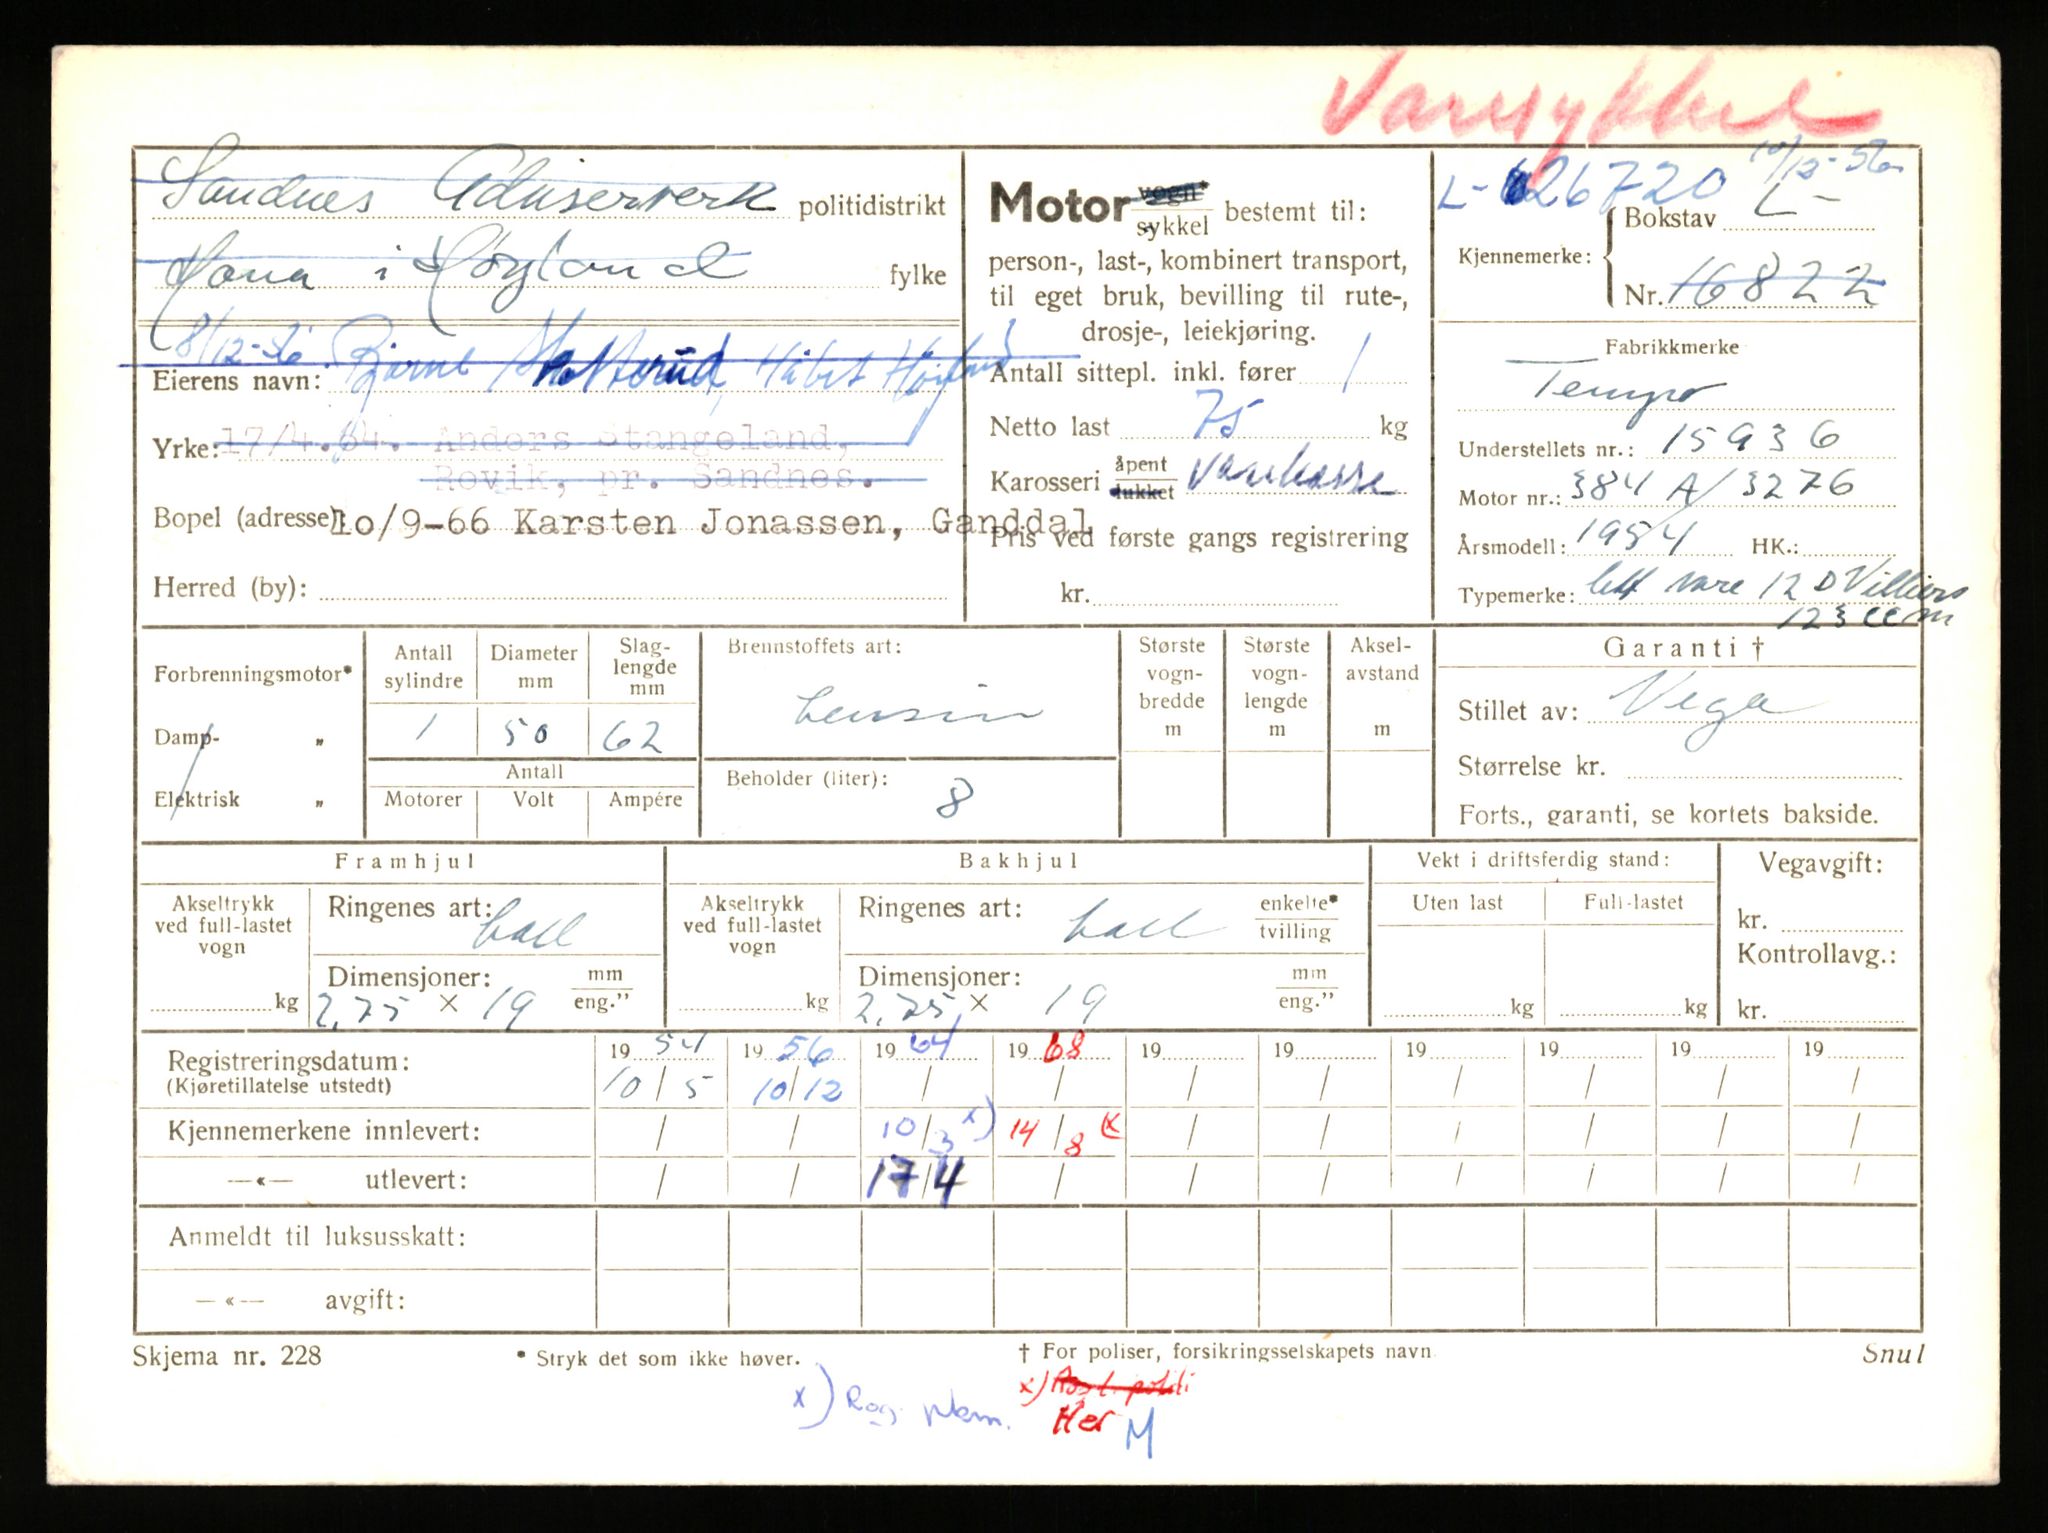 Varesykkel
Sandnes politidistrikt
Hana i Høyland fylke
8/12-56 Bjarne
Eierens navn: Håbet Høyland
Yrke: 17/4.64. Anders Stangeland,
Rovik, pr. Sandnes.
Bopel (adresse): 10/9-66 Karsten Jonassen, Ganddal
Herred (by):
Motor vogn*
sykkel bestemt til:
person-, last-, kombinert transport,
til eget bruk, bevilling til rute-,
drosje-, leiekjøring.
Antall sittepl. inkl. fører 1
Netto last 75 kg
Karosseri åpent
lukket varekasse
Pris ved første gangs registrering
kr.
L-26720 10/12-56
Bokstav L-
Kjennemerke:
Nr. 16822
Fabrikkmerke
Tempo
Understellets nr.: 15936
Motor nr.: 384 A/3276
Årsmodell: 1954 HK.:
Typemerke: lett vare 12 D Villiers
123 ccm
Forbrenningsmotor*
Damp- „
Elektrisk „
Antall sylindre
Diameter mm
Slaglengde mm
1 50 62
Antall
Motorer Volt Ampére
Brennstoffets art:
bensin
Beholder (liter):
8
Største vognbredde m
Største vognlengde m
Akselavstand m
Garanti †
Stillet av: Vega
Størrelse kr.
Forts., garanti, se kortets bakside.
Framhjul
Akseltrykk ved full-lastet vogn
kg
Ringenes art: ball
Dimensjoner: mm
2,75 × 19 eng.”
Bakhjul
Akseltrykk ved full-lastet vogn
kg
Ringenes art: ball enkelte*
tvilling
Dimensjoner: mm
2,75 × 19 eng.”
Vekt i driftsferdig stand:
Uten last Full-lastet
kg kg
Vegavgift:
kr.
Kontrollavg.:
kr.
Registreringsdatum: 19 54 19 56 19 64 19 68 19 19 19 19 19 19
(Kjøretillatelse utstedt) 10/5 10/12 / / / / / / / /
Kjennemerkene innlevert: / / 10/3 x) 14/8 (x / / / / / /
—«— utlevert: / / 17/4 / / / / / / /
Anmeldt til luksusskatt:
—«— avgift:
Skjema nr. 228 * Stryk det som ikke høver. † For poliser, forsikringsselskapets navn Snul
x) Rog. x)
Her M